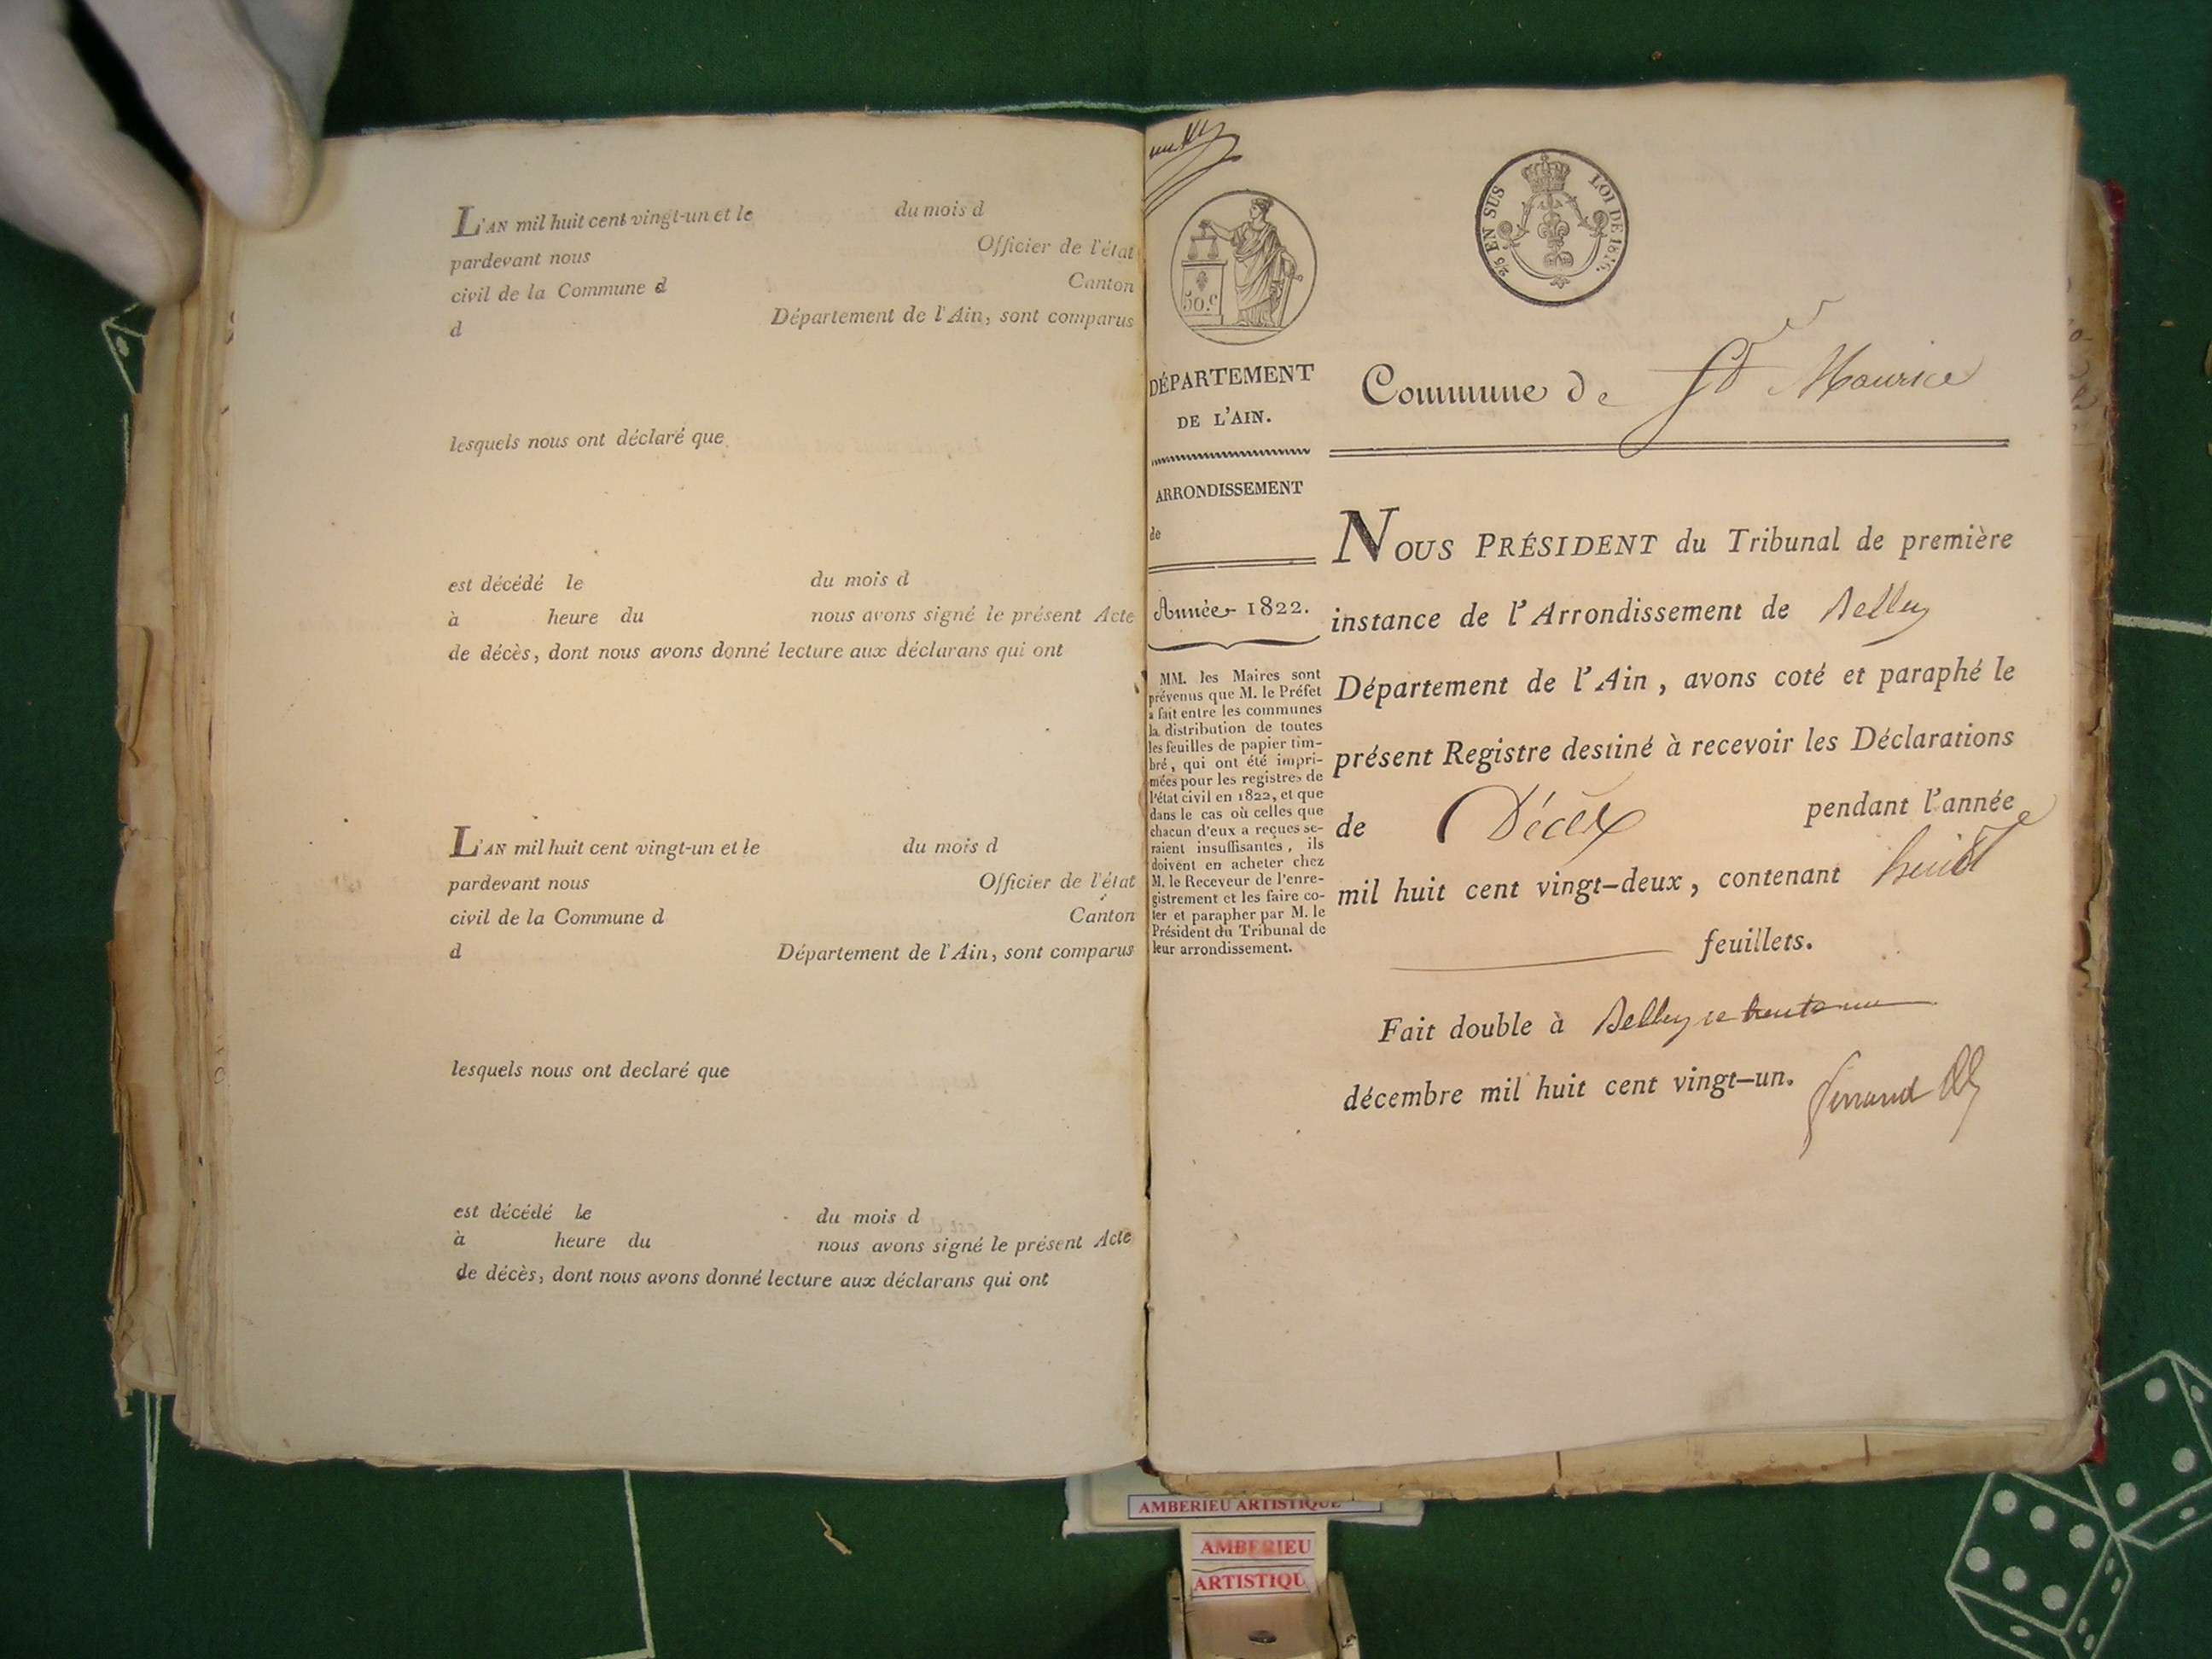 L'AN mil huit cent vingt-un et le du mois d
pardevant nous Officier de l'état
civil de la Commune d Canton
d Département de l'Ain, sont comparus
lesquels nous ont déclaré que
est décédé le du mois d
à heure du nous avons signé le présent Acte
de décès, dont nous avons donné lecture aux déclarans qui ont
L'AN mil huit cent vingt-un et le du mois d
pardevant nous Officier de l'état
civil de la Commune d Canton
d Département de l'Ain, sont comparus
lesquels nous ont declaré que
est décédé le du mois d
à heure du nous avons signé le présent Acte
de décès, dont nous avons donné lecture aux déclarans qui ont
50.c
25 EN SUS LOI DE 1816.
DÉPARTEMENT
DE L'AIN.
ARRONDISSEMENT
de
Année 1822.
MM. les Maires sont
prévenus que M. le Préfet
a fait entre les communes
la distribution de toutes
les feuilles de papier tim-
bré, qui ont été impri-
mées pour les registres de
l'état civil en 1822, et que
dans le cas où celles que
chacun d'eux a reçues se-
raient insuffisantes, ils
doivent en acheter chez
M. le Receveur de l'enre-
gistrement et les faire co-
ter et parapher par M. le
Président du Tribunal de
leur arrondissement.
Commune de St Maurice
NOUS PRÉSIDENT du Tribunal de première
instance de l'Arrondissement de Belley
Département de l'Ain, avons coté et paraphé le
présent Registre destiné à recevoir les Déclarations
de Décès pendant l'année
mil huit cent vingt-deux, contenant huit
feuillets.
Fait double à Belley ce trente un
décembre mil huit cent vingt-un.
AMBERIEU ARTISTIQUE
AMBERIEU
ARTISTIQU